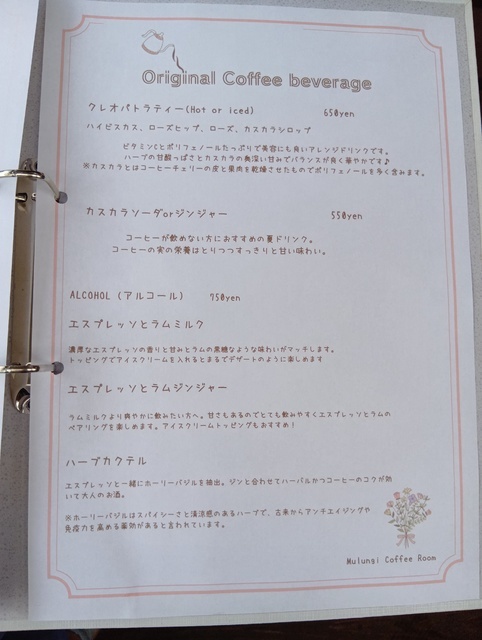 Original Coffee beverage
クレオパトラティー(Hot or iced) 650yen
ハイビスカス、ローズヒップ、ローズ、カスカラシロップ
ビタミンCとポリフェノールたっぷりで美容にも良いアレンジドリンクです。
ハーブの甘酸っぱさとカスカラの奥深い甘みでバランスが良く華やかです♪
※カスカラとはコーヒーチェリーの皮と果肉を乾燥させたものでポリフェノールを多く含みます。
カスカラソーダorジンジャー 550yen
コーヒーが飲めない方におすすめの夏ドリンク。
コーヒーの実の栄養はとりつつすっきりと甘い味わい。
ALCOHOL (アルコール) 750yen
エスプレッソとラムミルク
濃厚なエスプレッソの香りと甘みとラムの黒糖なような味わいがマッチします。
トッピングでアイスクリームを入れるとまるでデザートのように楽しめます
エスプレッソとラムジンジャー
ラムミルクより爽やかに飲みたい方へ。甘さもあるのでとても飲みやすくエスプレッソとラムの
ペアリングを楽しめます。アイスクリームトッピングもおすすめ!
ハーブカクテル
エスプレッソと一緒にホーリーバジルを抽出。ジンと合わせてハーバルかつコーヒーのコクが効
いて大人のお酒。
※ホーリーバジルはスパイシーさと清涼感のあるハーブで、古来からアンチエイジングや
免疫力を高める薬効があると言われています。
Mulungi Coffee Room